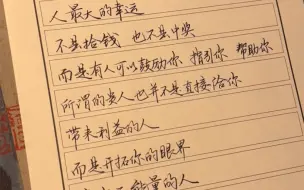 人最大的幸运
不是捡钱 也不是中奖
而是有人可以鼓励你 指引你 帮助你
所谓的贵人也并不是直接给你
带来利益的人
而是开拓你的眼界
能量的人